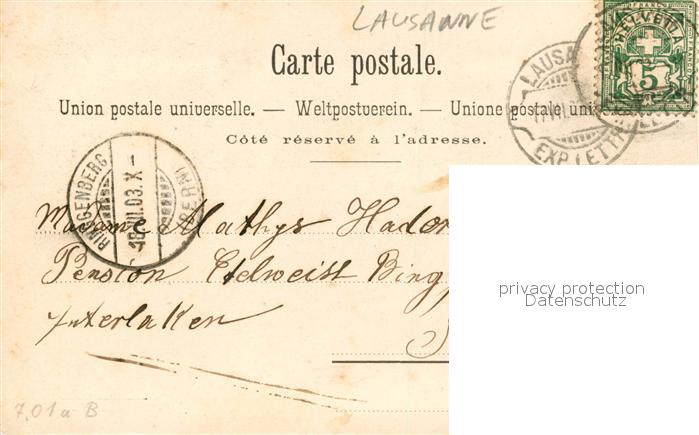 LAUSANNE
Carte postale.
Union postale universelle. — Weltpostverein. — Unione postale unive
Côté réservé à l'adresse.
HELVETIA
5
LAUSA
EXP. LETTR
RINGGENBERG
18.VII.03.X-
(BERN)
Madame Mathys Hador
Pension Edelweiss Ring
Interlaken
privacy protection
Datenschutz
7.01 a B